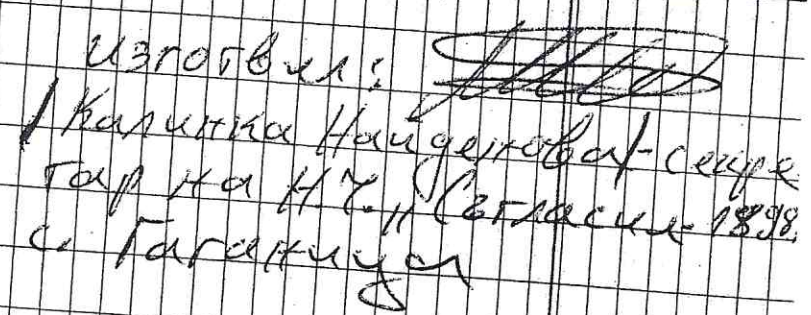 Изготвил:
/Калинка Найденова/-секре
тар на Н.Ч. „Съгласие-1898
с. Гаганица